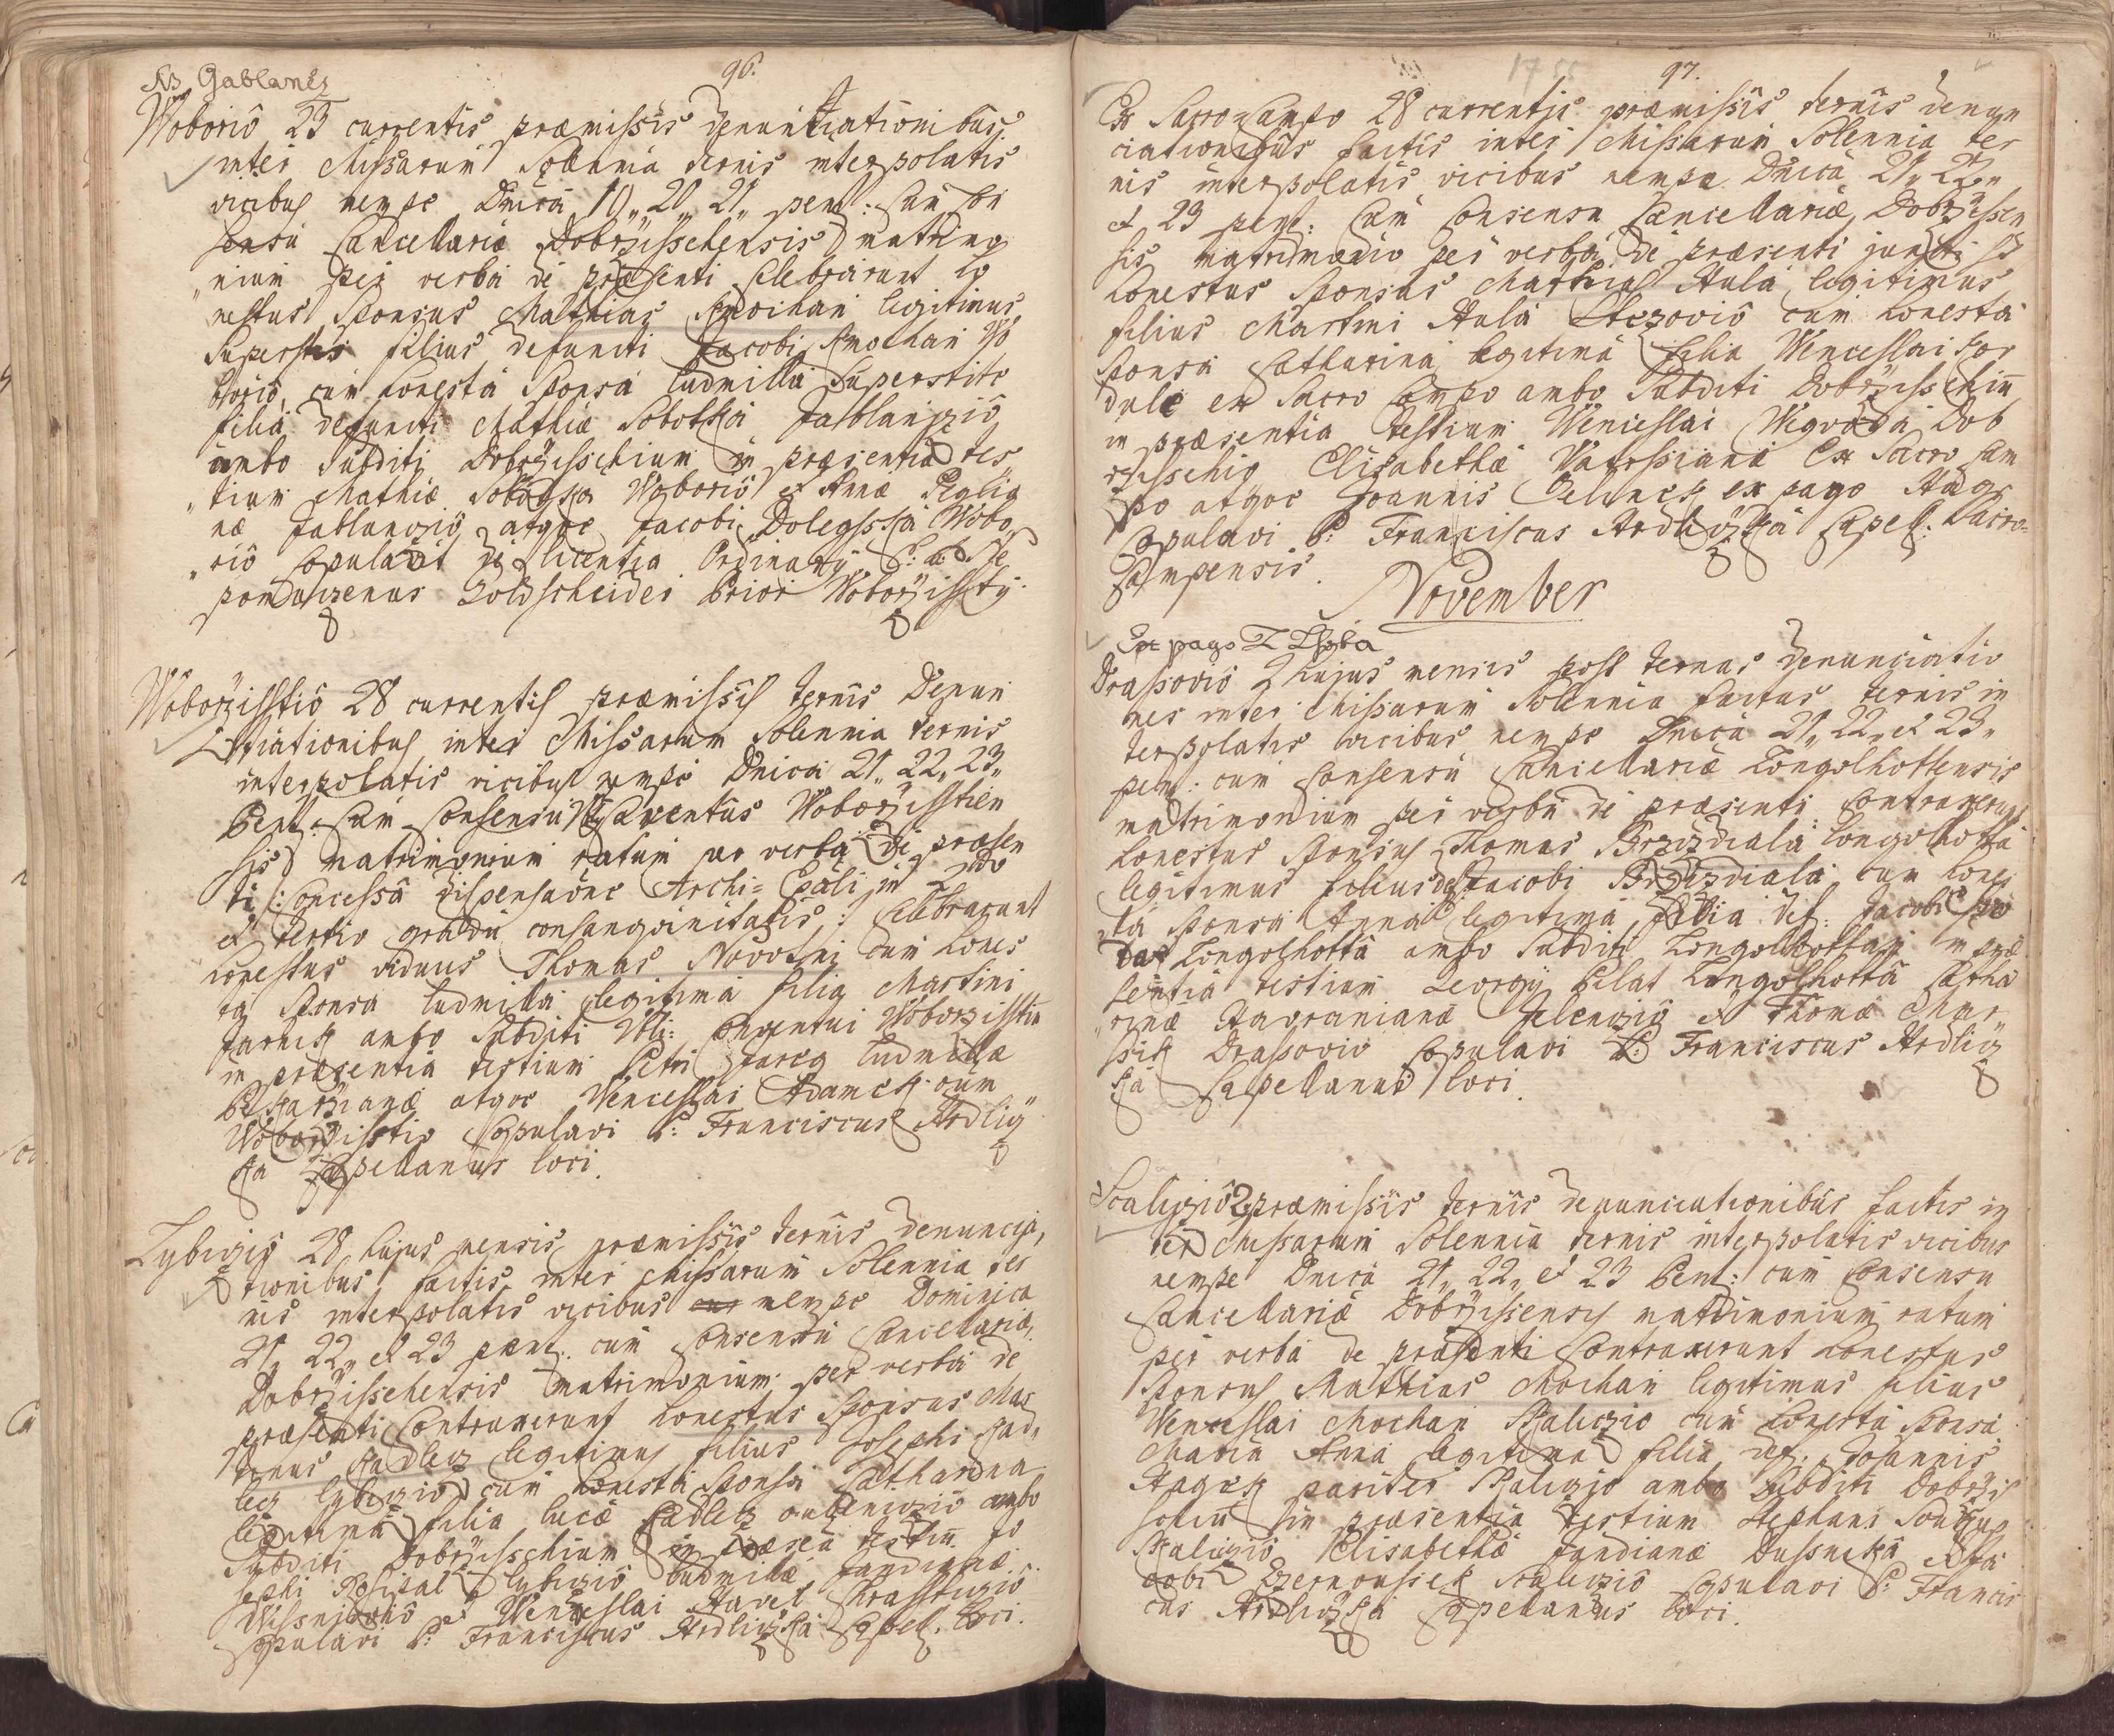 NB Gablanetz
96.
Woborio 23 currentis præmissis denuntiationibus
inter Missarum Solennia ternis interpolatis
vicibus nempe Dnica 19,, 20,, 21,, pent: cum con
sensu Cancellariæ Dobrzisschensis matrimo
nium per verba de præsenti celebrarunt ho
nestus Sponsus Mathias Smoihan legitimus
Superstes filius defuncti Jacobi Smothan Wo
borio, cum honesta Sponsa Ludmilla Superstite
filia defuncti Mathiæ Sobotka Jablanizio
ambo Subditi Dobrzisschium in præsentia tes
tium Mathiæ Woborio et Annæ
næ Jablanizio atque Jacobi Wobo
rio Copulavit de licentia Ordinarij P: Ne
pomuzenus Goldscheider Prior Woborzisstÿ
Woborzisstio 28 currentis præmissis ternis Denun
tiationibus inter Missarum Solennia ternis
interpolatis vicibus nempe Dnica 21,, 22,, 23,,
Pent: cum Consensu Conventus Woborzisstien
sis matrimonium ratum per verba de præsen
ti /: Concessa dispensaõne Archi=Epali in 2do
et tertio gradu consangvinitatis :/ celebrarunt
honestus viduus Thomas Novotni cum hones
ta Sponsa Ludmilla legitima filia Martini
ambo Subditi Conventui Woborzisstiu
in præsentia testium Petri Ludmillæ
atque Wenceslai Adamek oũm
Woborzisstio Copulavi P: Franciscus Hrdlicz
ka Capellanus loci.
Lybizio 28 hujus mensis præmissis ternis denuncia,
tionibus factis inter Missarum Solennia ter
nis interpolatis vicibus nempe Dominica
21,, 22,, et 23 pent: cum Consensu Cancellariæ
Dobrzisschensis matrimonium per verba de
præsenti Contraxerunt honestus Sponsus Mar
tinus Kadlecz legitimus filius Josephi Kad,
lecz Lybizio cum honesta Sponsa Catharina
legitima filia Lucæ Kadlecz ambo
Subditi Dobrzisschium in præsea testiũ Jo
sephi Lybizio Ludmillæ
et Wenceslai Havel
Copulavi P: Franciscus Hrdliczka Capell: loci.
1755
97.
Ex Sacro=Campo 28 currentis præmissis ternis denun
ciationibus factis inter Missarum Solennia ter
nis interpolatis vicibus nempe Dnica 21,, 22,,
et 23 pent: cum Consensu Cancellariæ Dobrzissen
sis matrimonio per verba de præsenti juncti st
honestus Sponsus Mathias Hula legitimus
filius Martini Hula cum honesta
Sponsa Catharina legitima filia Wenceslai Kor
dule ex Sacro Campo ambo Subditi Dobrzisschiũ
in præsentia testium Wenceslai Dob
rzisschio Elisabethæ Ex Sacro Cam
po atque Joannis ex pago
Copulavi P: Franciscus Hrdliczka Capell: Sacro=
Campensis.
November
Ex pago Z Lhota
Drasovio 2 hujus mensis post ternas denunciatio
nes inter Missarum Solennia factas ternis in
terpolatis vicibus nempe Dnica 21,, 22,, et 23,,
pent: cum Consensu Cancellariæ Longolhottensis
matrimonium per verba de præsenti Contraxerunt
honestus Sponsus Thomas Longolhotta
legitimus filius def Jacobi cum hones
ta Sponsa Anna legitima filia def: Jacobi
Longolhotta ambo Subditi in præ
sentia testium Georgÿ Pilat Longolhotta Catha
rinæ et Thomæ Mar
Drasovio Copulavi P: Franciscus Hrdlicz
ka Capellanus loci.
Scalizio 2 præmissis ternis denunciationibus factis in
ter Missarum Solennia ternis interpolatis vicibus
nempe Dnica 21,, 22,, et 23 Pent: cum Consensu
Cancellariæ Dobrzissensis matrimonium ratum
per verba de præsenti Contraxerunt honestus
Sponsus Mathias Mochan legitimus filius
Wenceslai Mochan Skalizio cum honesta Sponsa
Maria Anna legitima filia def: Joannis
pariter Skalizio ambo Subditi Dobrzis
schiũ in præsentia testium Stephani
Skalizio Elisabethæ et Ja
cobi Skalizio Copulavi P: Francis
cus Hrdliczka Capellanus loci.